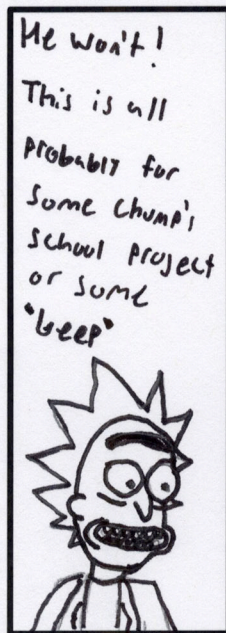 He won't!
This is all
probably for
some chump's
school project
or some
"beep"